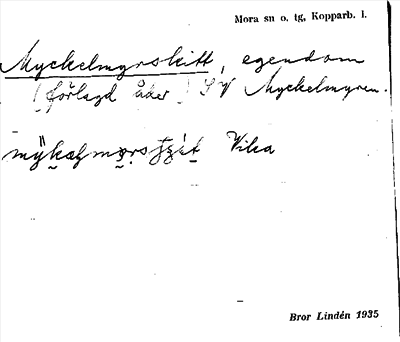 Mora sn o. tg, Kopparb. l.
Myckelmyrskitt, egendom
(förlagd åker) SV Myckelmyren.
Vika
Bror Lindén 1935